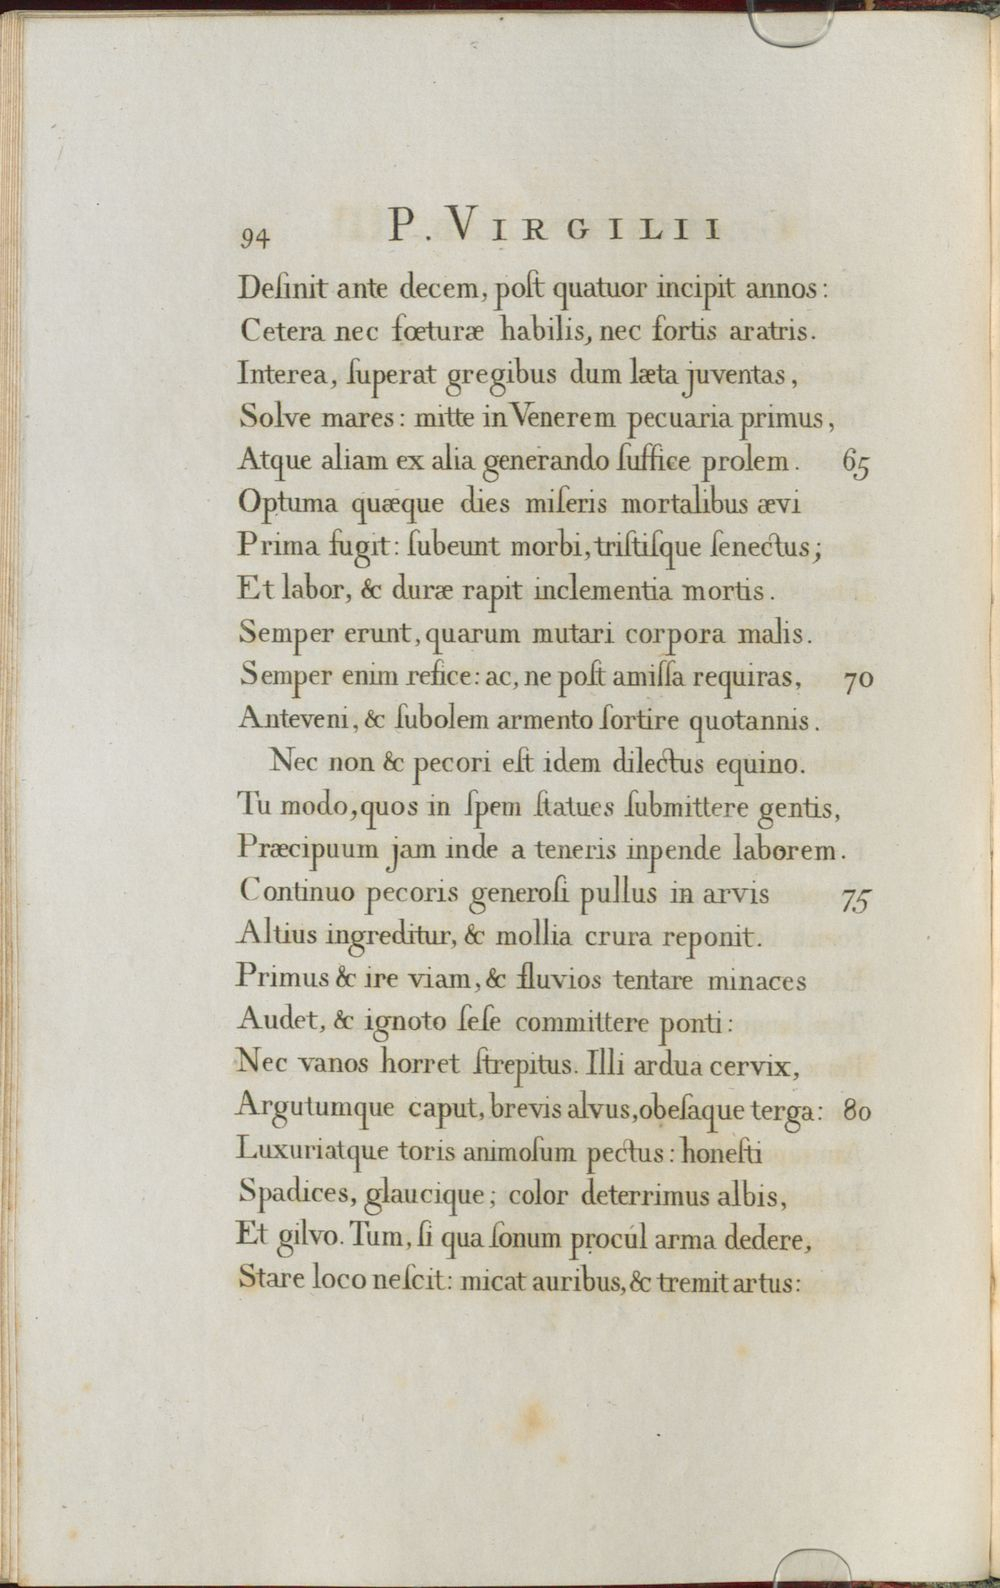 94 P. VIRGILII
Deſinit ante decem, poſt quatuor incipit annos:
Cetera nec fœturæ habilis, nec fortis aratris.
Interea, ſuperat gregibus dum læta juventas,
Solve mares: mitte in Venerem pecuaria primus,
Atque aliam ex alia generando ſuffice prolem. 65
Optuma quæque dies miſeris mortalibus ævi
Prima fugit: ſubeunt morbi, triſtiſque ſenectus;
Et labor, & duræ rapit inclementia mortis.
Semper erunt, quarum mutari corpora malis.
Semper enim refice: ac, ne poſt amiſſa requiras, 70
Anteveni, & ſubolem armento ſortire quotannis.
Nec non & pecori eſt idem dilectus equino.
Tu modo, quos in ſpem ſtatues ſubmittere gentis,
Præcipuum jam inde a teneris inpende laborem.
Continuo pecoris generoſi pullus in arvis 75
Altius ingreditur, & mollia crura reponit.
Primus & ire viam, & fluvios tentare minaces
Audet, & ignoto ſeſe committere ponti:
Nec vanos horret ſtrepitus. Illi ardua cervix,
Argutumque caput, brevis alvus, obeſaque terga: 80
Luxuriatque toris animoſum pectus: honeſti
Spadices, glaucique; color deterrimus albis,
Et gilvo. Tum, ſi qua ſonum procúl arma dedere,
Stare loco neſcit: micat auribus, & tremit artus: